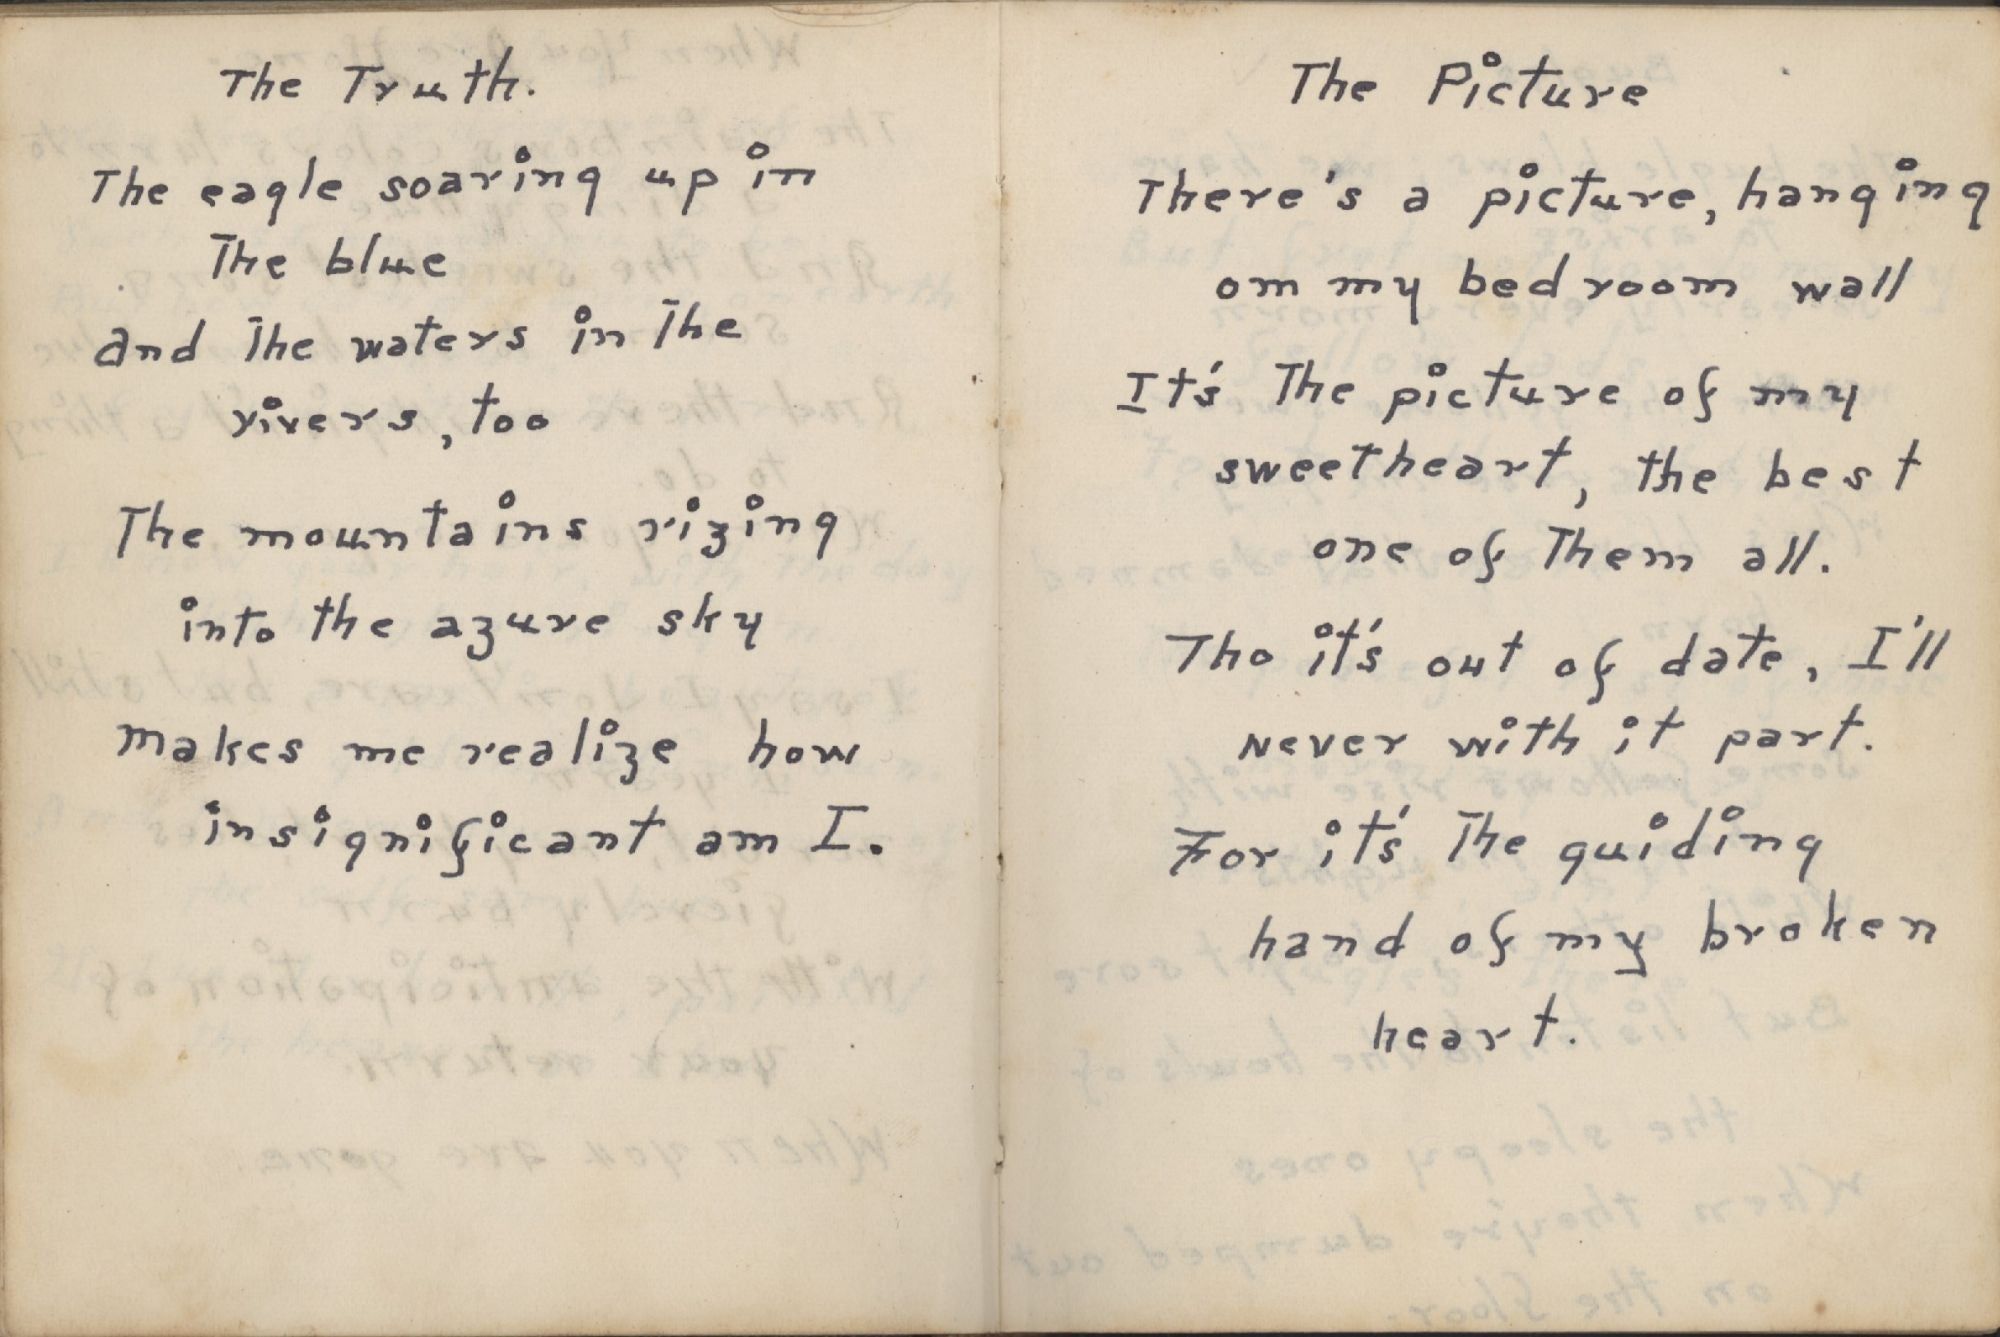 The Truth.
The eagle soaring up in
The blue
and The waters in The
rivers, too
The mountains rizing
into the azure sky
Makes me realize how
insignificant am I.
The Picture
There's a picture, hanging
om my bedroom wall
It's The picture of my
sweetheart, the best
one of Them all.
Tho it's out of date, I'll
Never with it part.
For it's The guiding
hand of my broken
heart.